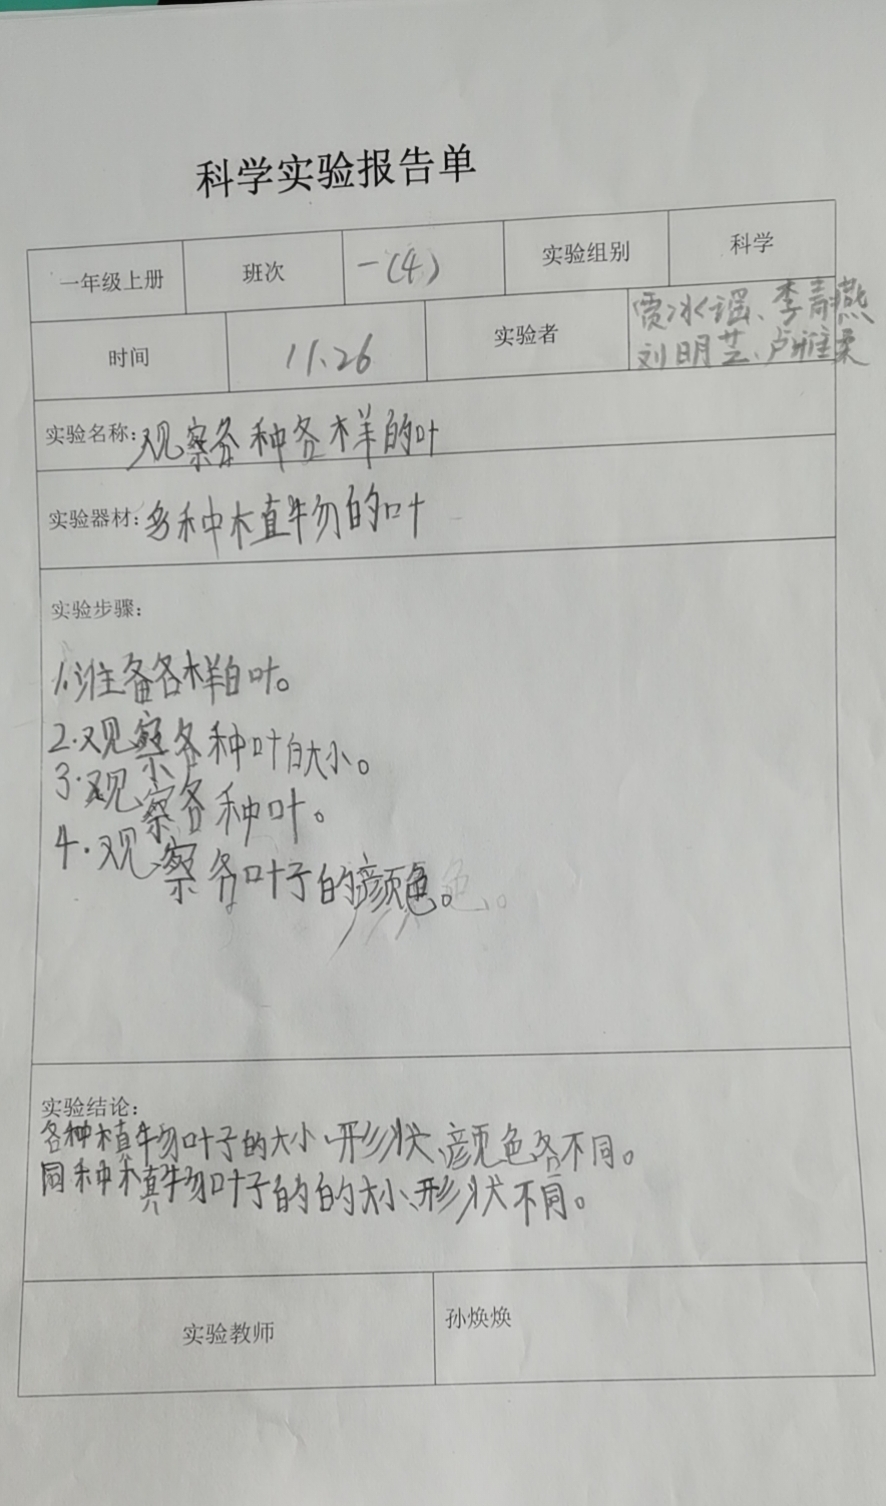 科学实验报告单
一年级上册 班次 一(4) 实验组别 科学
贾冰谣、李青燕
时间 11.26 实验者 刘明芸、卢雅柔
实验名称:观察各种各样的叶
实验器材:多种植物的叶
实验步骤:
1.准备各样的叶。
2.观察各种叶的大小。
3.观察各种叶。
4.观察各叶子的颜色。
实验结论:
各种植物叶子的大小、形状、颜色各不同。
同种植物叶子的的大小、形状不同。
实验教师 孙焕焕